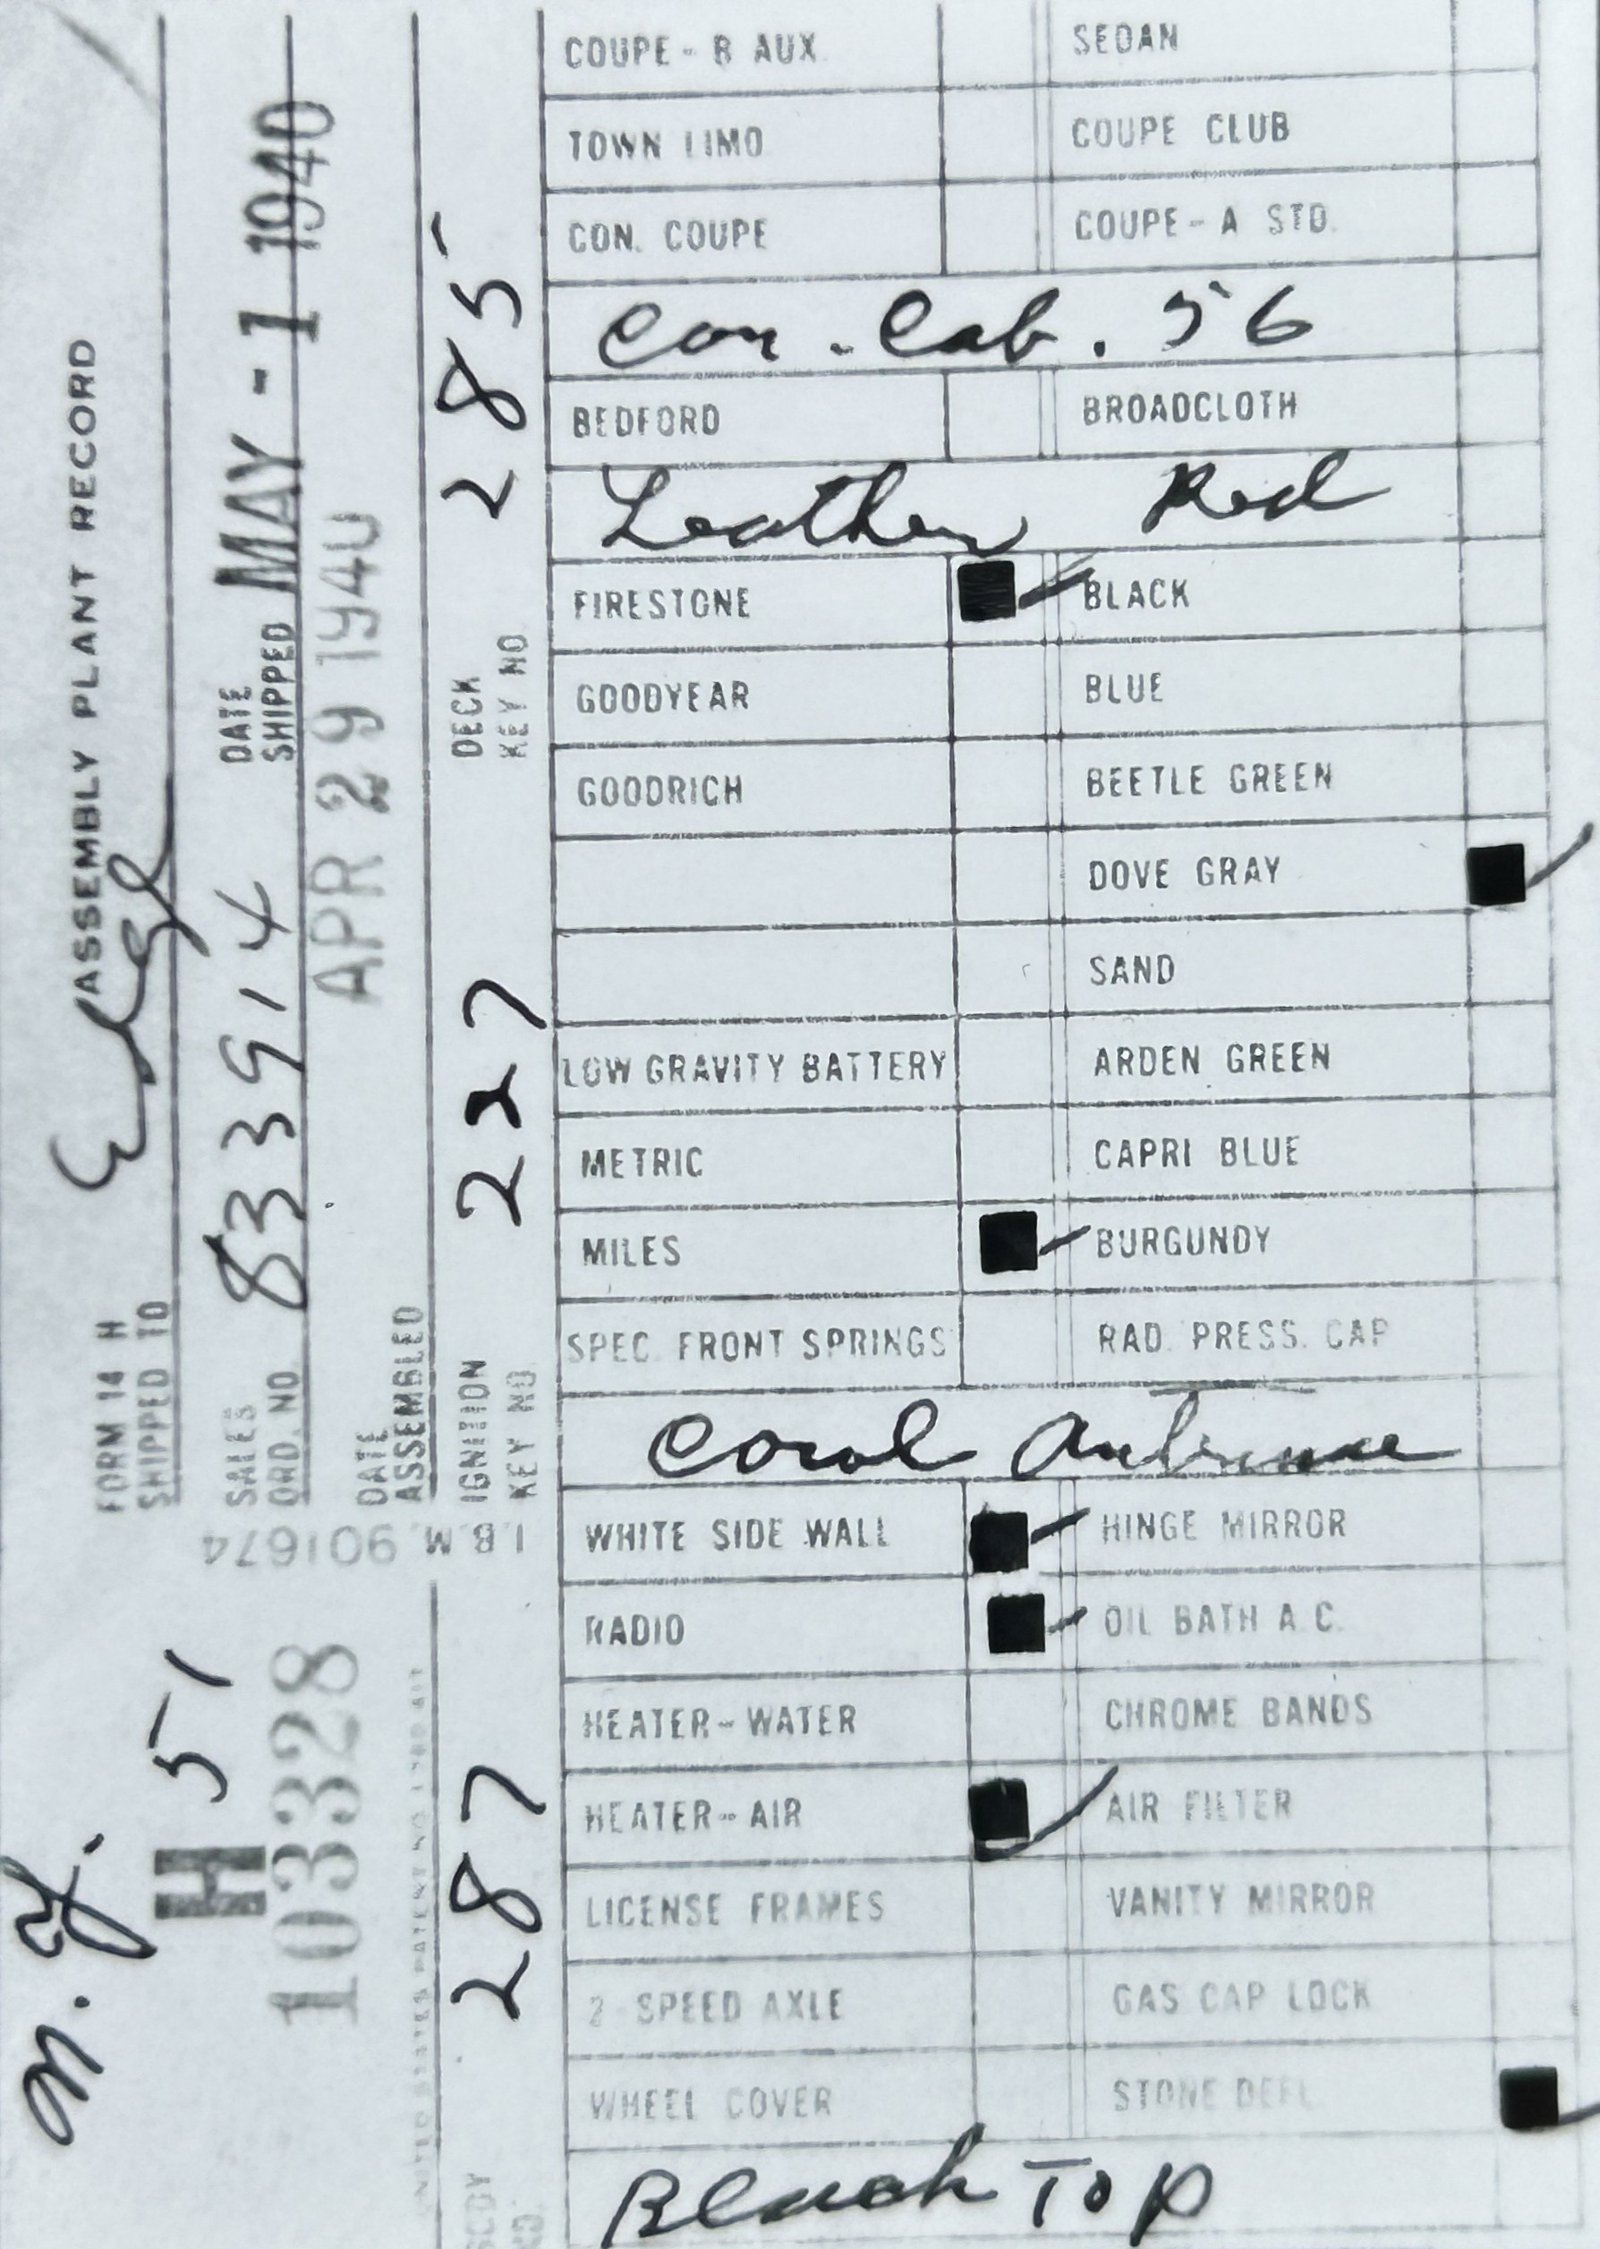 COUPE - B AUX. SEDAN
TOWN LIMO COUPE CLUB
CON. COUPE COUPE - A STD.
Con. Cab. 56
BEDFORD BROADCLOTH
Leather Red
FIRESTONE BLACK
GOODYEAR BLUE
GOODRICH BEETLE GREEN
DOVE GRAY
SAND
LOW GRAVITY BATTERY ARDEN GREEN
METRIC CAPRI BLUE
MILES BURGUNDY
SPEC. FRONT SPRINGS RAD. PRESS. CAP
Cowl Antenna
WHITE SIDE WALL HINGE MIRROR
RADIO OIL BATH A.C.
HEATER - WATER CHROME BANDS
HEATER - AIR AIR FILTER
LICENSE FRAMES VANITY MIRROR
2 SPEED AXLE GAS CAP LOCK
WHEEL COVER STONE DEFL
Black Top
ASSEMBLY PLANT RECORD
FORM 14 H
SHIPPED TO
N.Y.
H 51
103328
SALES ORD. NO. 833914
DATE SHIPPED MAY - 1 1940
DATE ASSEMBLED APR 29 1940
I.B.M. 901674
287
IGNITION KEY NO. 227
DECK KEY NO. 285